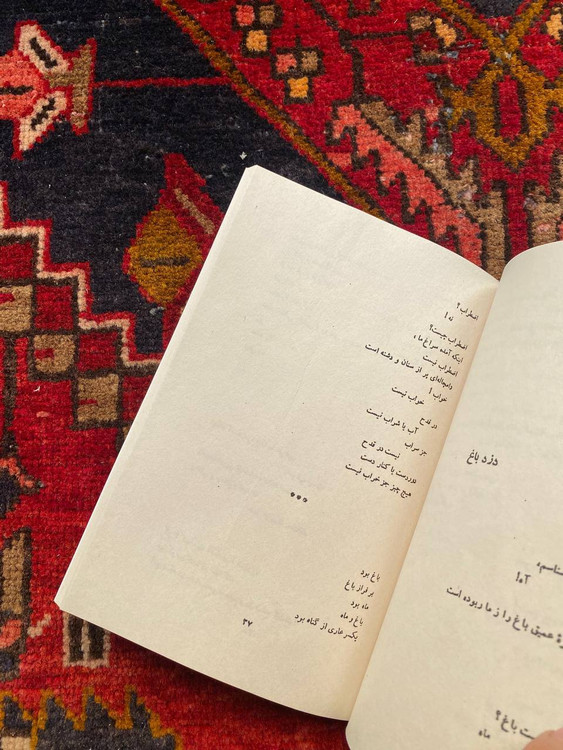 اضطراب؟
نه!
اضطراب چیست؟
اینکه آمده سراغ ما،
اضطراب نیست
دامچاله‌ای پر از سنان و دشنه است
خواب!
خواب نیست
در قدح
آب یا شراب نیست
جز سراب
نیست در قدح
دوردست یا کنار دست
هیچ چیز جز خراب نیست
•••
باغ بود
بر فراز باغ
ماه بود
باغ و ماه
یکسر عاری از گناه بود
۳۷
دزد باغ
آه!
عمیق باغ را ز ما ربوده است
باغ؟
ماه